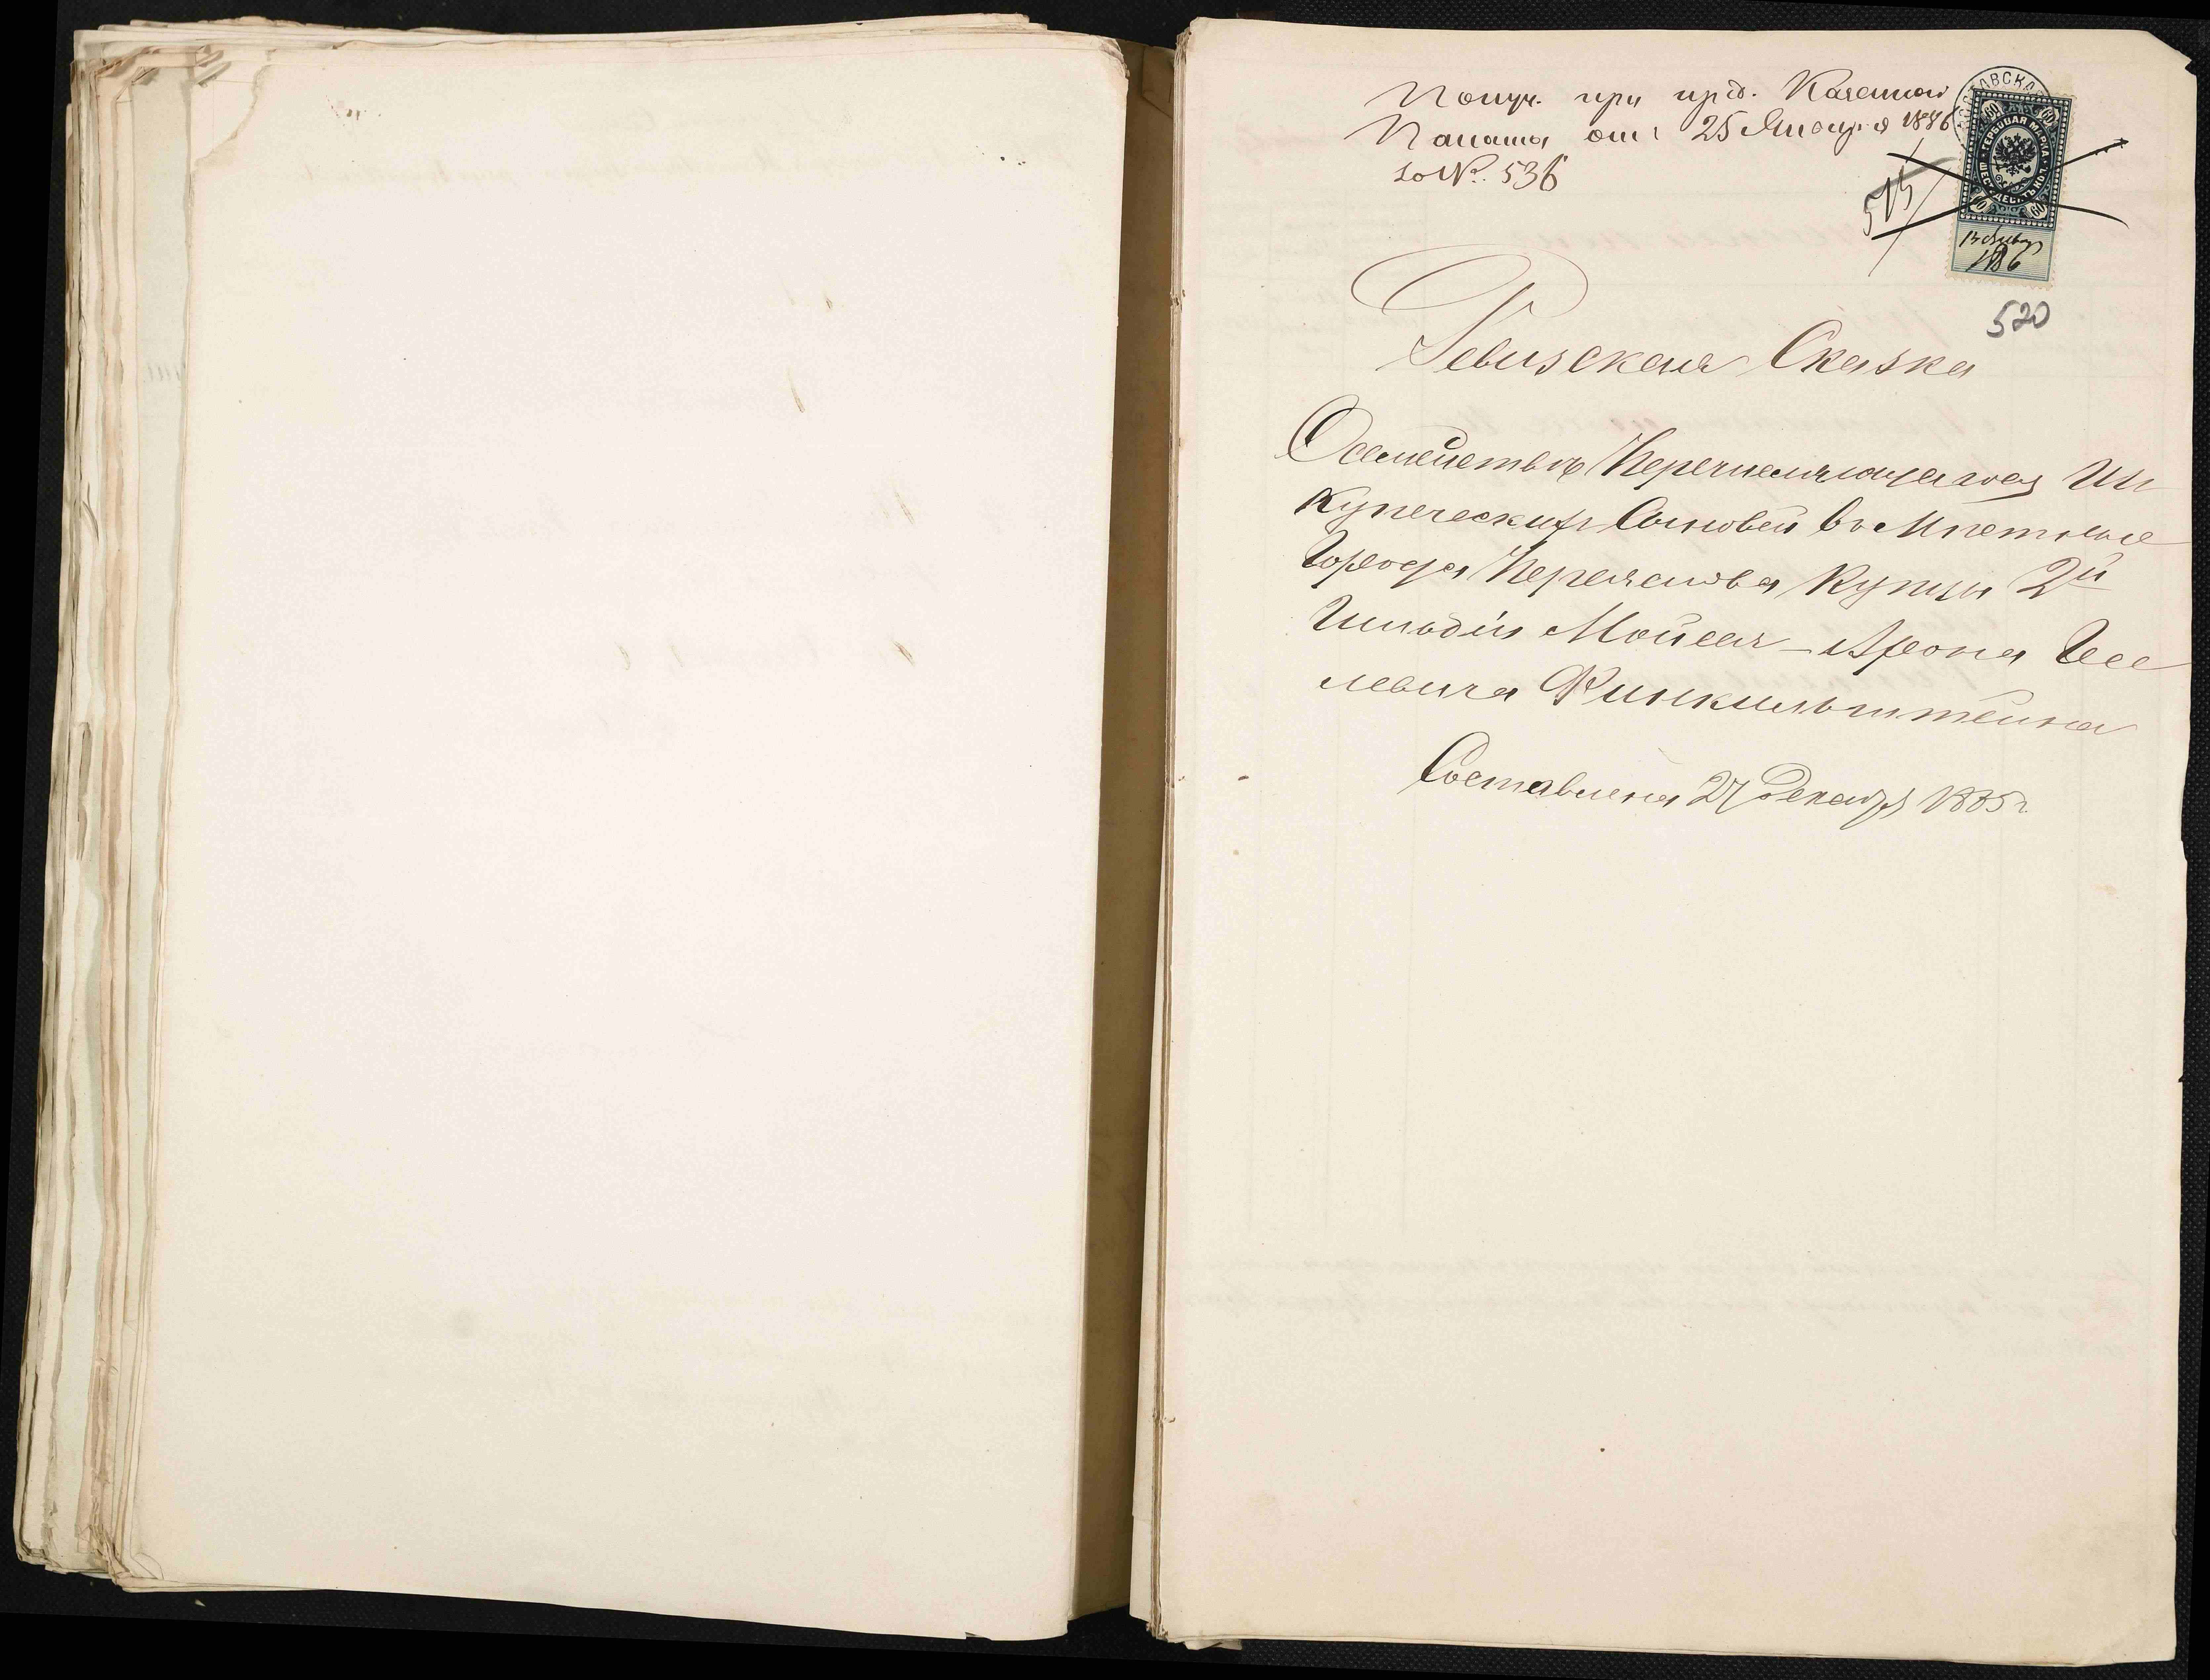 Получ. при пред. Казенной
Палаты отъ 25 Января 1886
за №. 536
515
ГЕРБОВАЯ МАРКА
ШЕСТЬДЕСЯТЪ КОП.
60
13 Январ
1886
520
Ревизская Сказка
О семействѣ Перечисляющагося Изъ
Купеческихъ Сыновей въ Мѣстные
Города Переяслова Купцы 2й
Гильдіи Мойсея-Арона Іос
левича Финкильштейна
Составлена 27 Декабря 1885 г.